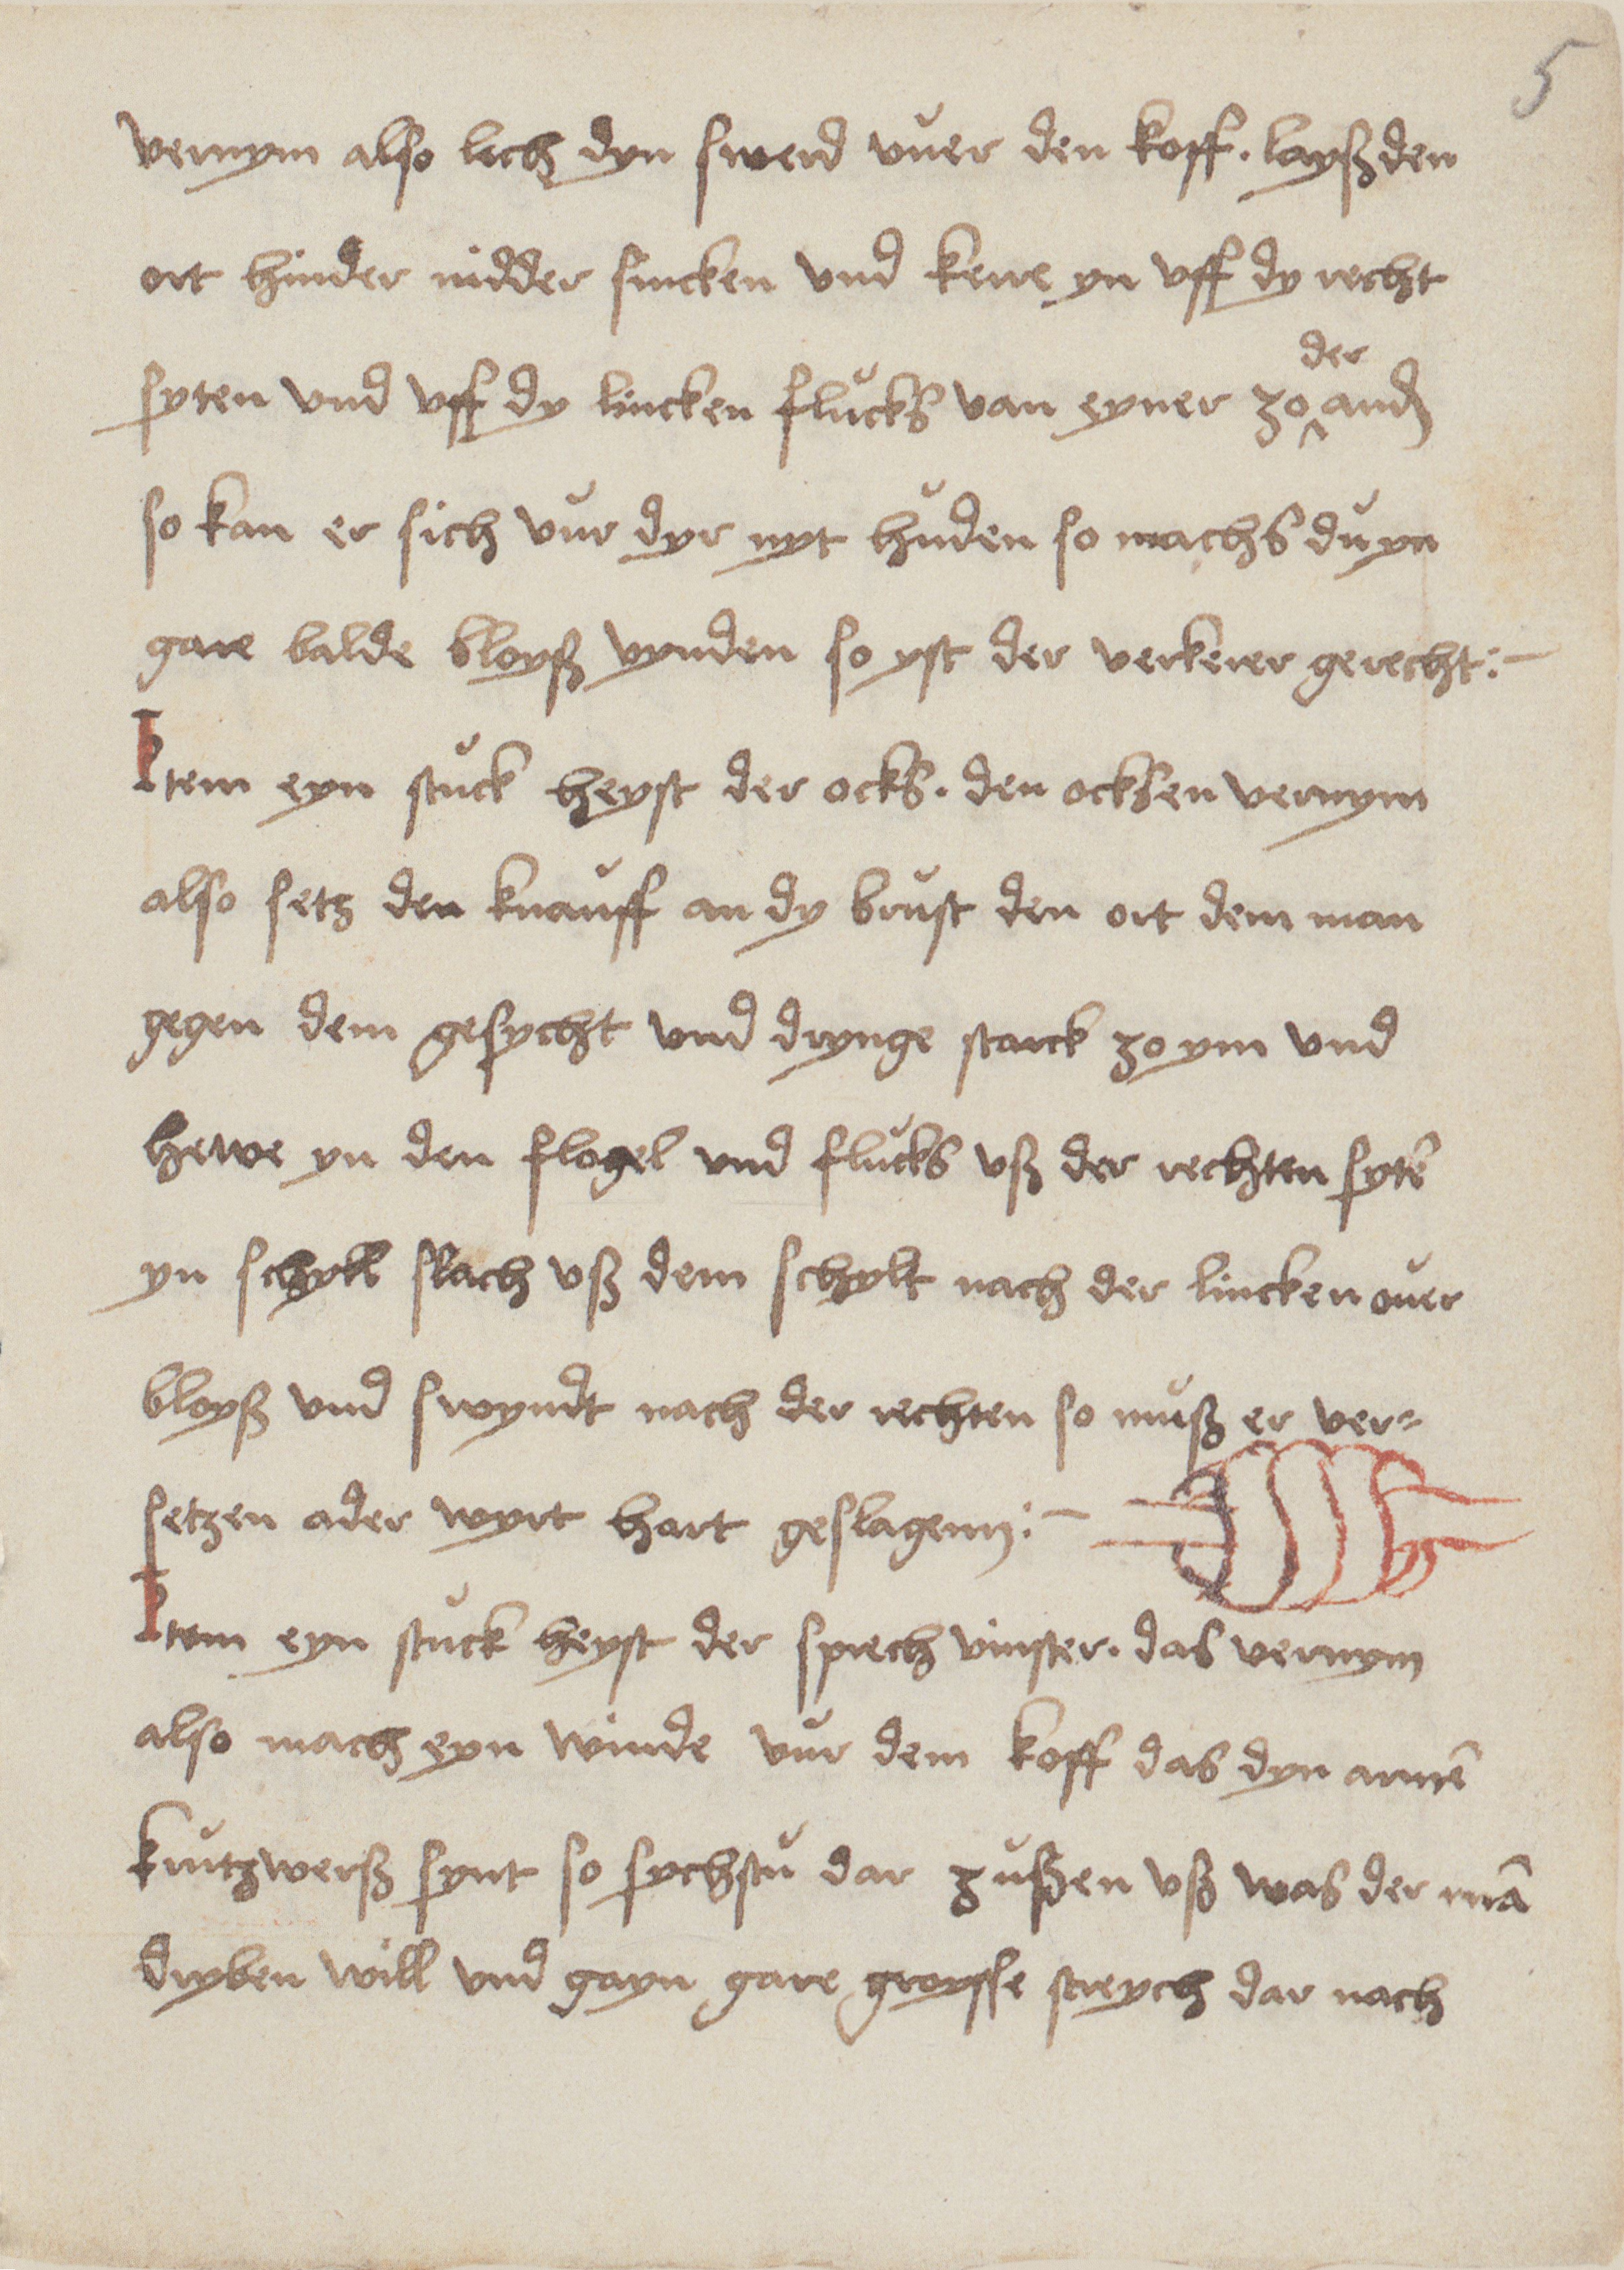 5
vernym also lech dyn swerd vuer den koff. layß den
ort hinder nidder sincken vnd kere yn vff dy recht
syten vnd vff dy lincken flucks van eyner zo der and
so kan er sich vur dyr nyt huden so machs du yn
gare balde bloyß vynden so yst der verkerer gerecht:-
Item eyn stuck heyst der ocks. den ocksen vernym
also setz den knauff an dy brust den ort dem man
gegen dem gesycht vnd drynge starck zo ym vnd
hewe yn den flogel vnd flucks vß der rechten sytē
yn schylt slach vß dem schylt nach der lincken ouer
bloyß vnd swyndt nach der rechten so muß er ver=
setzen ader wyrt hart geslagenn:-
Item eyn stuck heyst der sprech vinster. das vernym
also mach eyn winde vur dem koff das dyn armē
krutzwerß synt so sychstu dar zußen vß was der mā
dryben will vnd gayn gare groysse streych dar nach